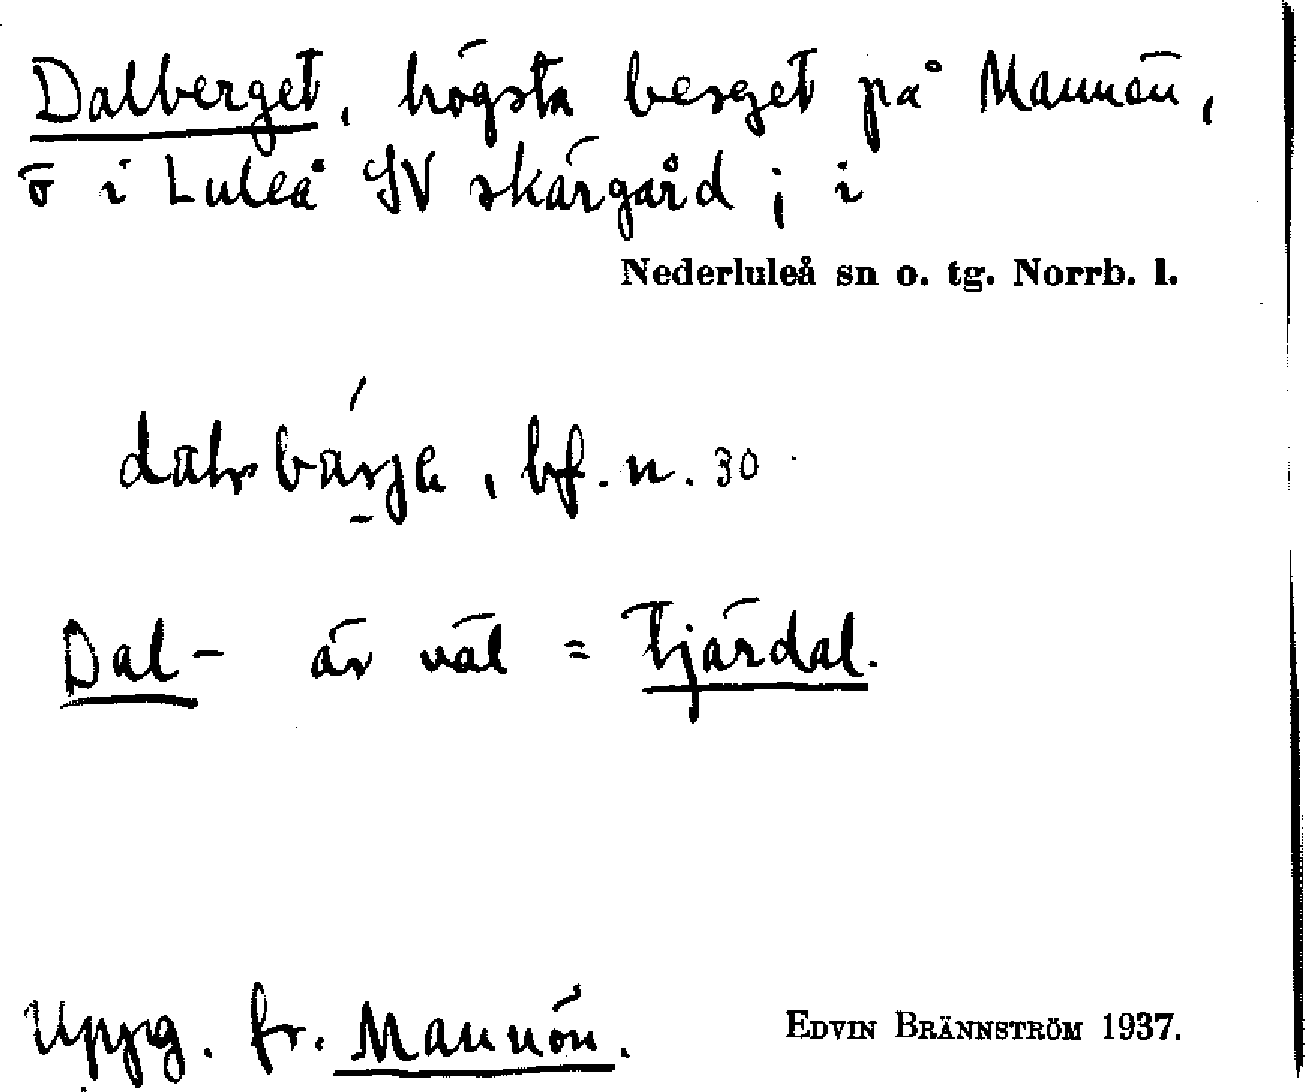 Dalberget, högsta berget på Mannön,
ö i Luleå SV skärgård; i
Nederluleå sn o. tg. Norrb. l.
bf. n. 30
Dal- är väl = Tjärdal.
Uppg. fr. Mannön.
EDVIN BRÄNNSTRÖM 1937.